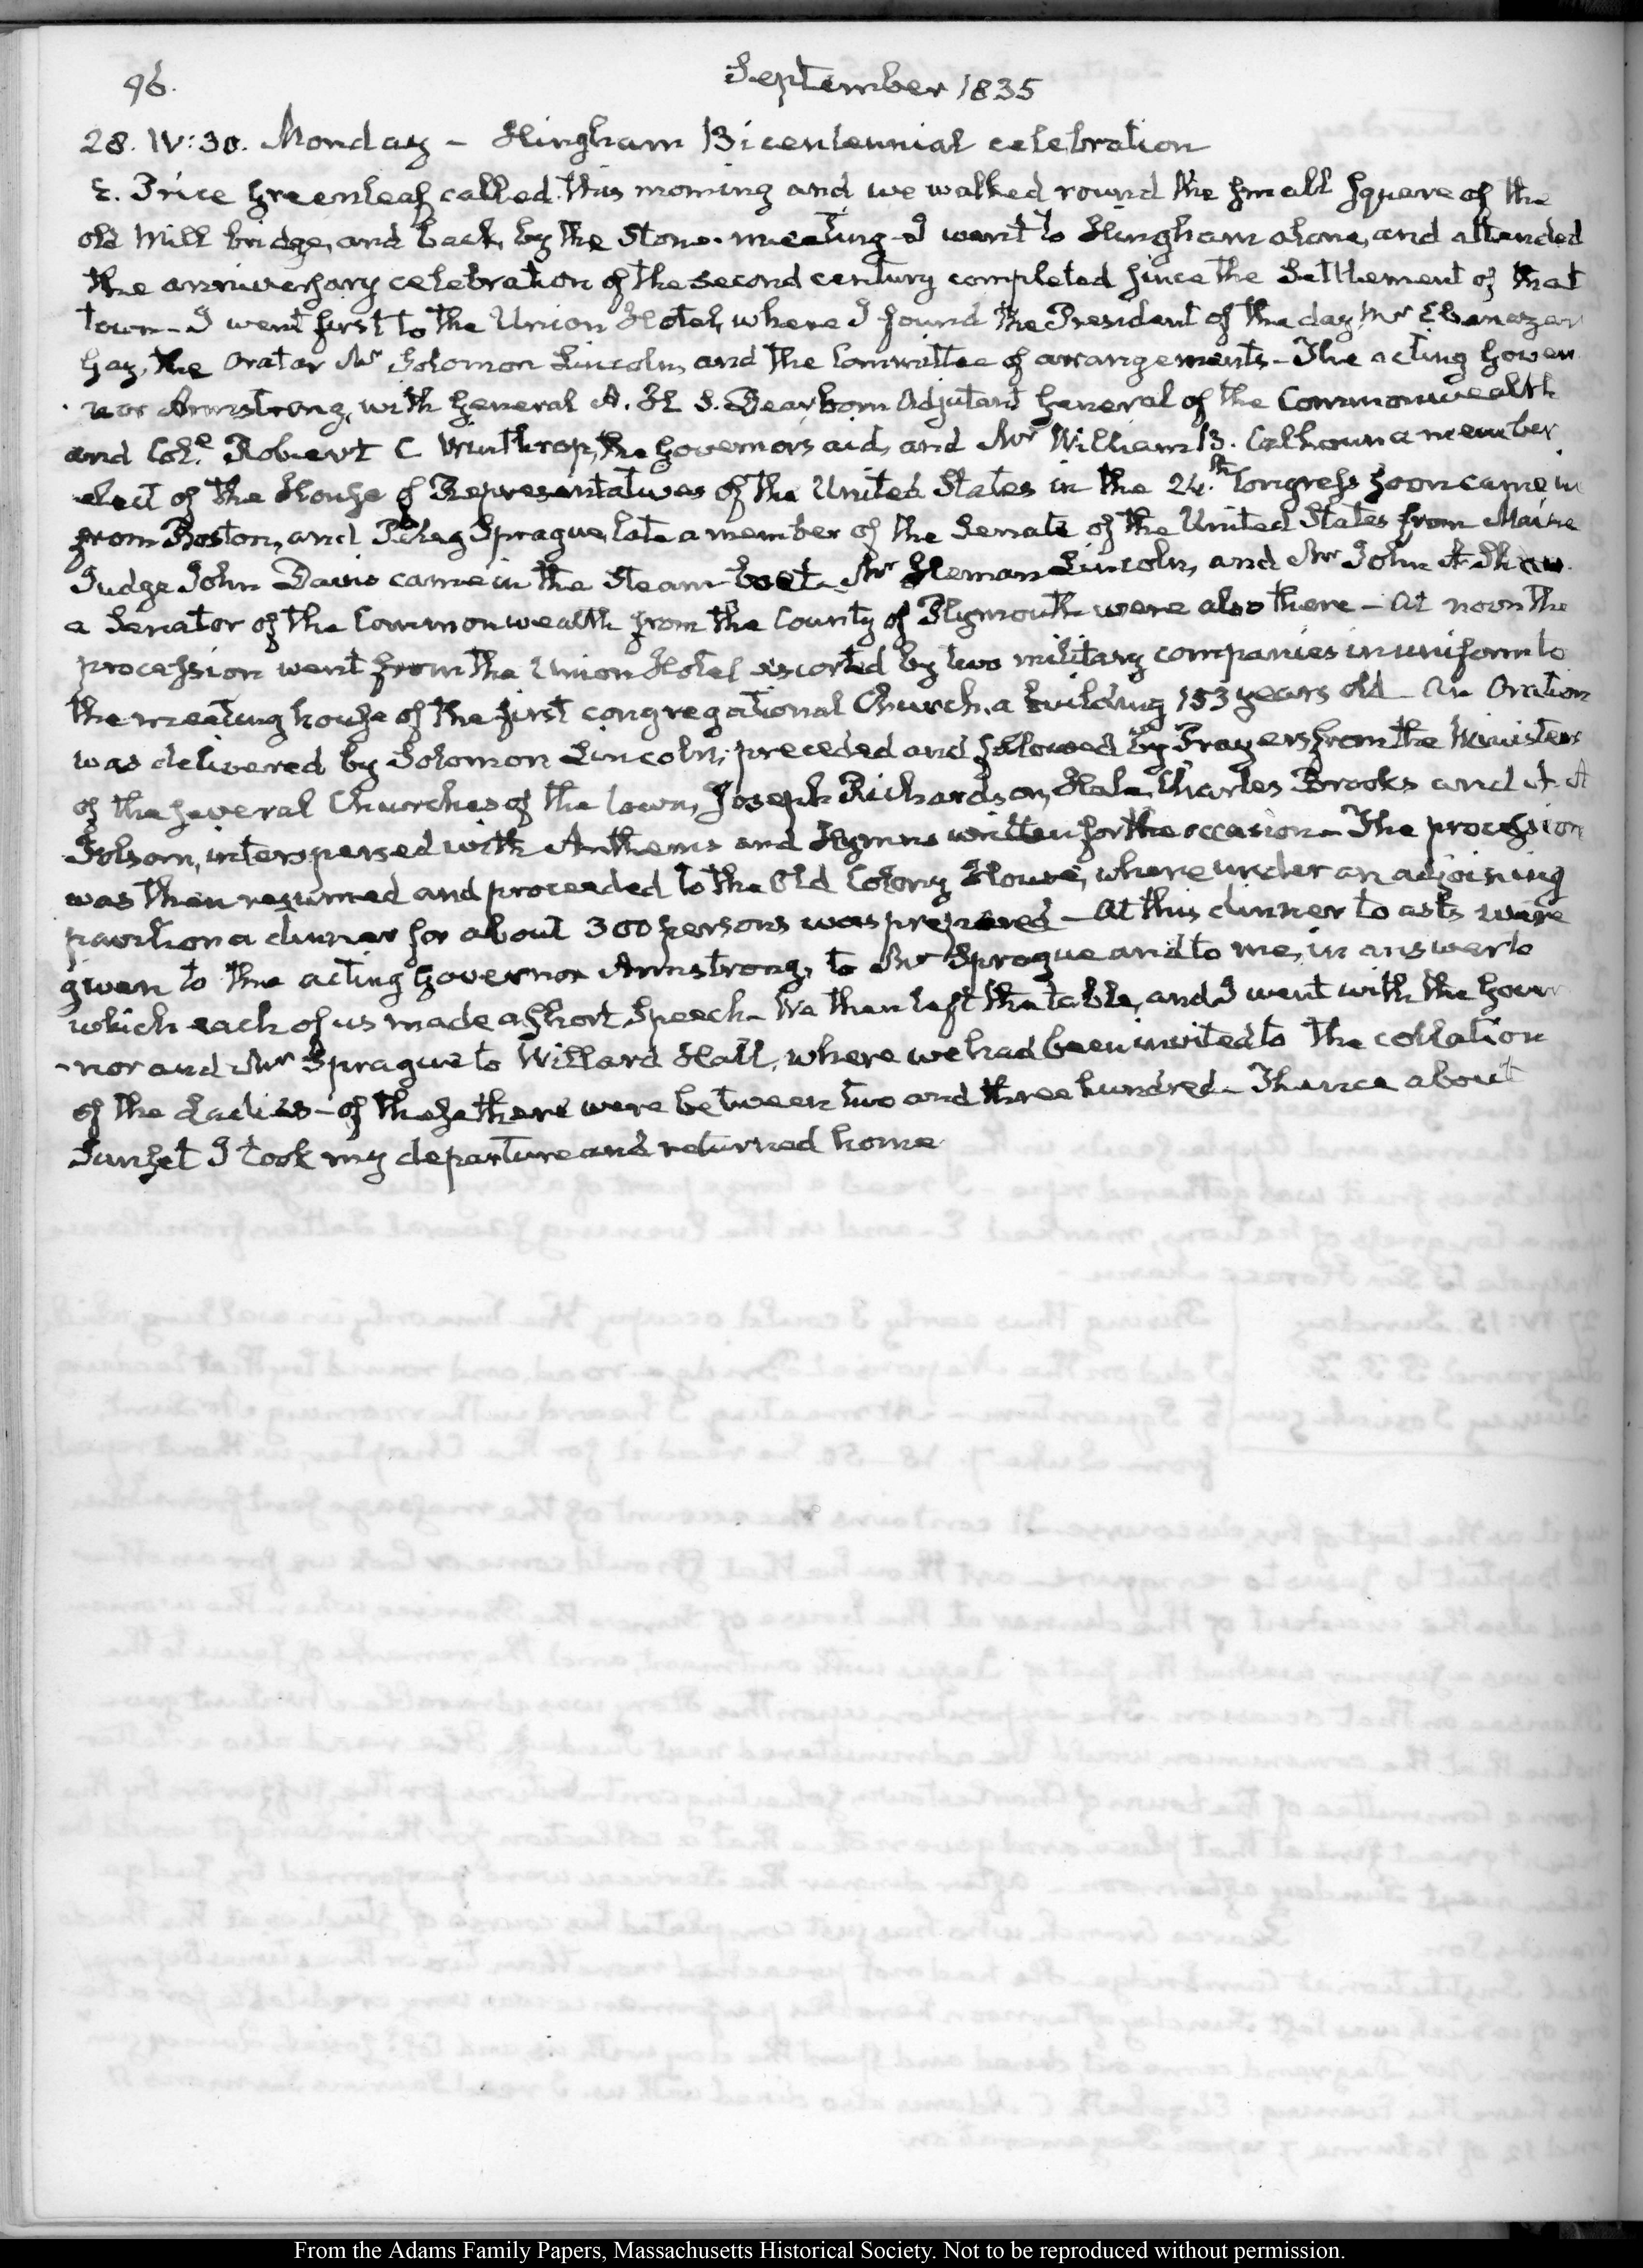 96.
September 1835
28. IV:30. Monday – Hingham Bicentennial celebration
E. Price Greenleaf called this morning and we walked round the small square of the
old Mill bridge, and back, by the Stone-meeting – I went to Hingham alone, and attended
the anniversary celebration of the second century completed since the Settlement of that
town – I went first to the Union Hotel, where I found the President of the day Mr Ebenezer
Gay, the Orator Mr Solomon Lincoln, and the Committee of arrangements – The acting Gover
nor Armstrong, with General A. H. S. Dearborn Adjutant General of the Commonwealth
and Col.e Robert C Winthrop, the Governor's aid, and Mr William B. Calhoun a member
elect of the House of Representatives of the United States in the 24.th Congress soon came in
from Boston, and Peleg Sprague, late a member of the Senate of the United States from Maine
Judge John Davis came in the Steam-boat – Mr Heman Lincoln, and Mr John A Shaw
a Senator of the Commonwealth from the County of Plymouth were also there – At noon the
procession went from the Union Hotel escorted by two military companies in uniform to
the meeting house of the first congregational Church, a building 153 years old – An Oration
was delivered by Solomon Lincoln; preceded and followed by Prayers from the Ministers
of the several Churches of the town, Joseph Richardson, Hale, Charles Brooks and A. A
Folsom, interspersed with Anthems and Hymns written for the occasion – The procession
was then resumed and proceeded to the Old Colony House, where under an adjoining
pavilion a dinner for about 300 persons was prepared – At this dinner toasts were
given to the acting Governor Armstrong, to Mr Sprague and to me, in answer to
which each of us made a short Speech – We then left the table, and I went with the Gover
-nor and Mr Sprague to Willard Hall, where we had been invited to the collation
of the Ladies – of these there were between two and three hundred – Thence about
Sunset I took my departure and returned home
From the Adams Family Papers, Massachusetts Historical Society. Not to be reproduced without permission.